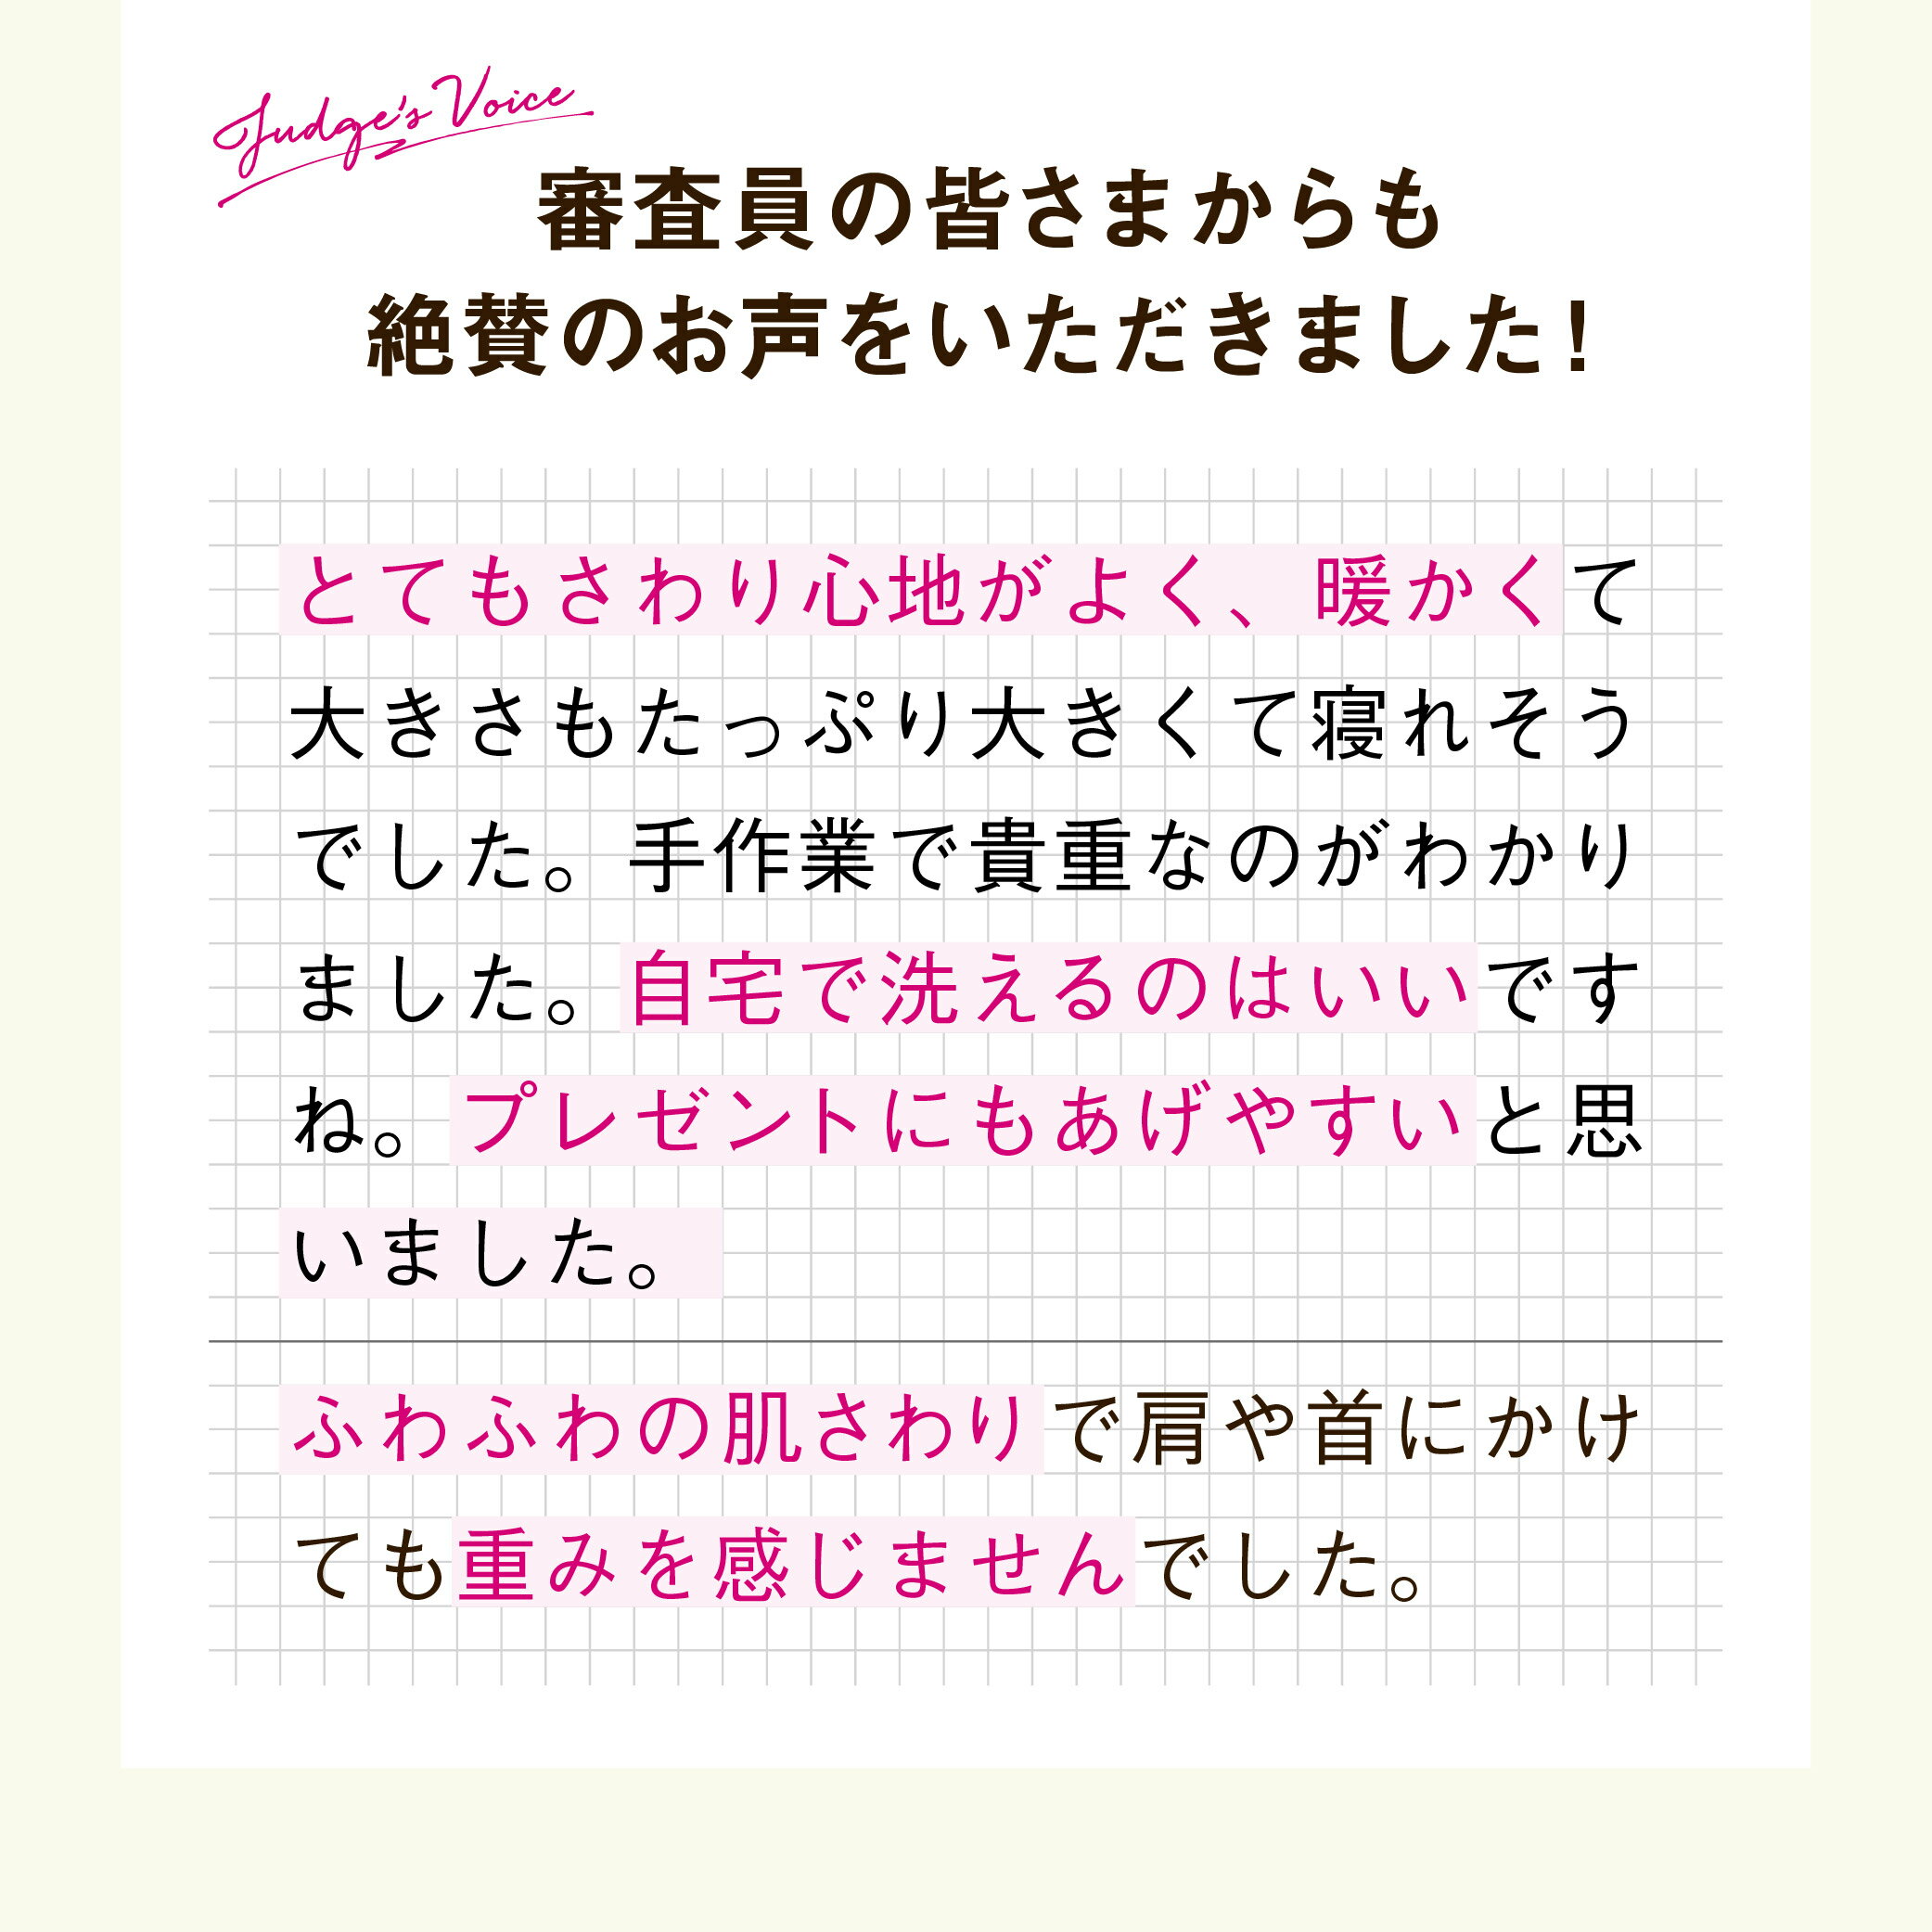 Judge's Voice
審査員の皆さまからも
絶賛のお声をいただきました！
とてもさわり心地がよく、暖かくて
大きさもたっぷり大きくて寝れそう
でした。手作業で貴重なのがわかり
ました。自宅で洗えるのはいいです
ね。プレゼントにもあげやすいと思
いました。
ふわふわの肌さわりで肩や首にかけ
ても重みを感じませんでした。